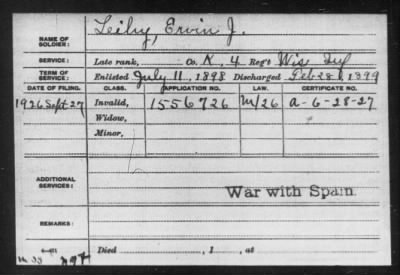 NAME OF SOLDIER: Leiby, Ervin J.
SERVICE: Late rank, Co. K, 4 Reg't Wis Inf
TERM OF SERVICE: Enlisted July 11, 1898 Discharged Feb 28, 1899
DATE OF FILING. CLASS. APPLICATION NO. LAW. CERTIFICATE NO.
1926 Sept 27 Invalid, 1556726 M/26 A-6-28-27
Widow,
Minor,
ADDITIONAL SERVICES:
War with Spain.
REMARKS:
Died , 1 , at